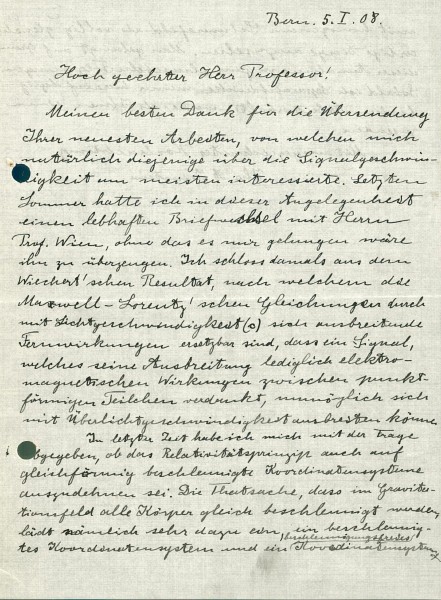 Bern. 5. I. 08.
Hoch geehrter Herr Professor!
Meinen besten Dank für die Übersendung
Ihrer neuesten Arbeiten, von welchen mich
natürlich diejenige über die Signalgeschwin-
digkeit am meisten interessierte. Letzten
Sommer hatte ich in dieser Angelegenheit
einen lebhaften Briefwechsel mit Herrn
Prof. Wien, ohne das es mir gelungen wäre
ihn zu überzeugen. Ich schloss damals aus dem
Wiechert'schen Resultat, nach welchem die
Maxwell-Lorentz'schen Gleichungen durch
mit Lichtgeschwindigkeit (c) sich ausbreitende
Fernwirkungen ersetzbar sind, dass ein Signal,
welches seine Ausbreitung lediglich elektro-
magnetischen Wirkungen zwischen punkt-
förmigen Teilchen verdankt, unmöglich sich
mit Überlichtgeschwindigkeit ausbreiten könne.
In letzter Zeit habe ich mich mit der Frage
abgegeben, ob das Relativitätsprinzip auch auf
gleichförmig beschleunigte Koordinatensysteme
auszudehnen sei. Die Thatsache, dass im Gravita-
tionsfeld alle Körper gleich beschleunigt werden,
lädt nämlich sehr dazu ein, ein beschleunig-
tes Koordinatensystem und ein beschleunigungsfreies Koordinatensystem